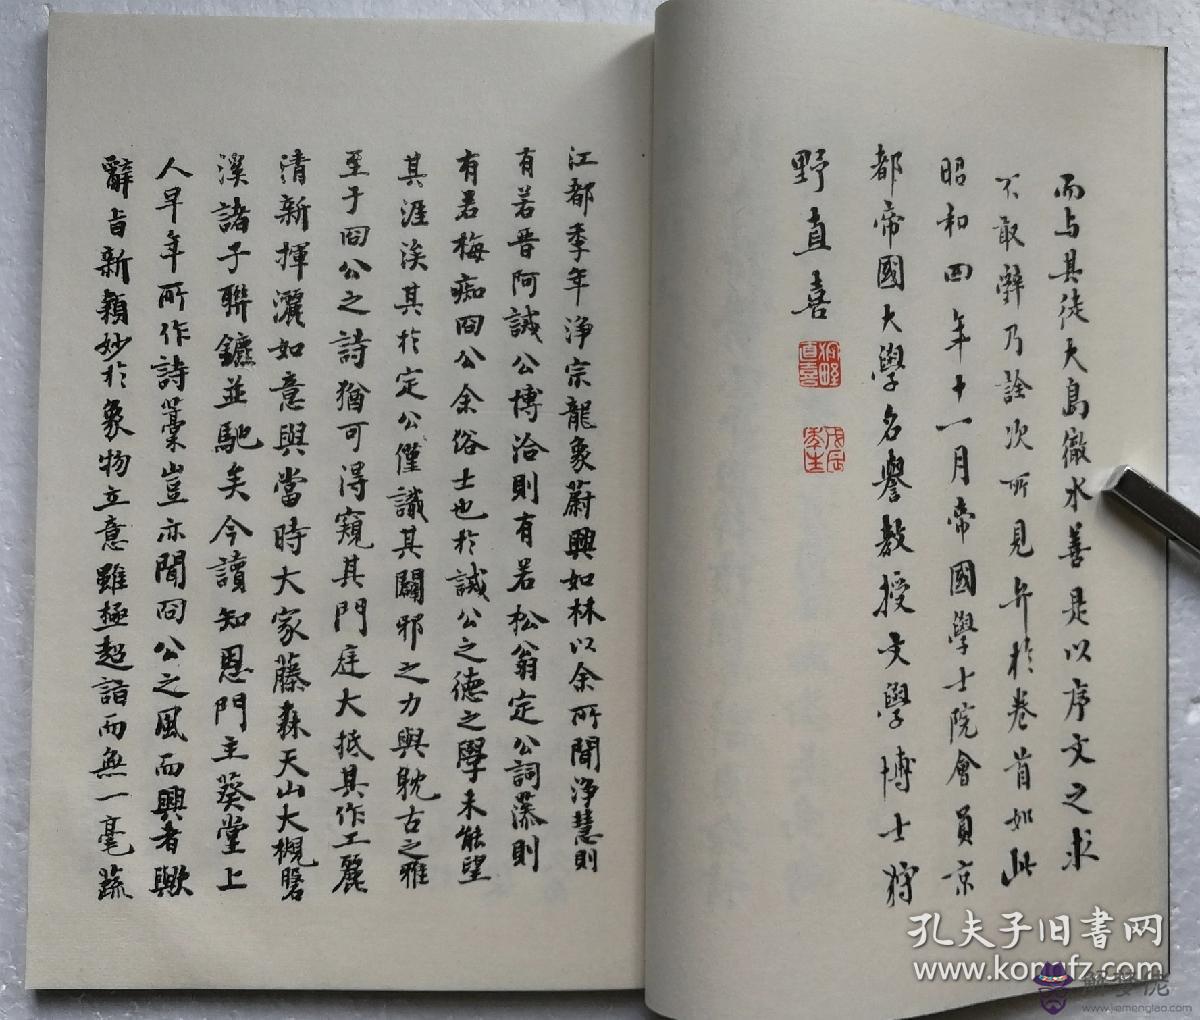 而与其徒大島徹水善是以序文之求
不敢辭乃詮次所見弁於卷首如此
昭和四年十一月帝國學士院會員京
都帝國大學名譽教授文學博士狩
野直喜
狩野直喜
戊辰季生
江都季年淨宗龍象蔚興如林以余所聞淨慧則
有若晉阿誠公博洽則有若松翁定公詞藻則
有若梅癡冏公余俗士也於誠公之德之學未能望
其涯涘其於定公僅識其闢邪之力與耽古之雅
至于冏公之詩猶可得窺其門庭大抵其作工麗
清新揮灑如意與當時大家藤森天山大槻磐
溪諸子聯鑣並馳矣今讀知恩門主葵堂上
人早年所作詩藁豈亦聞冏公之風而興者歟
辭旨新穎妙於象物立意雖極超詣而無一毫蔬
孔夫子旧书网
www.kongfz.com
解夢佬
www.jiemenglao.com